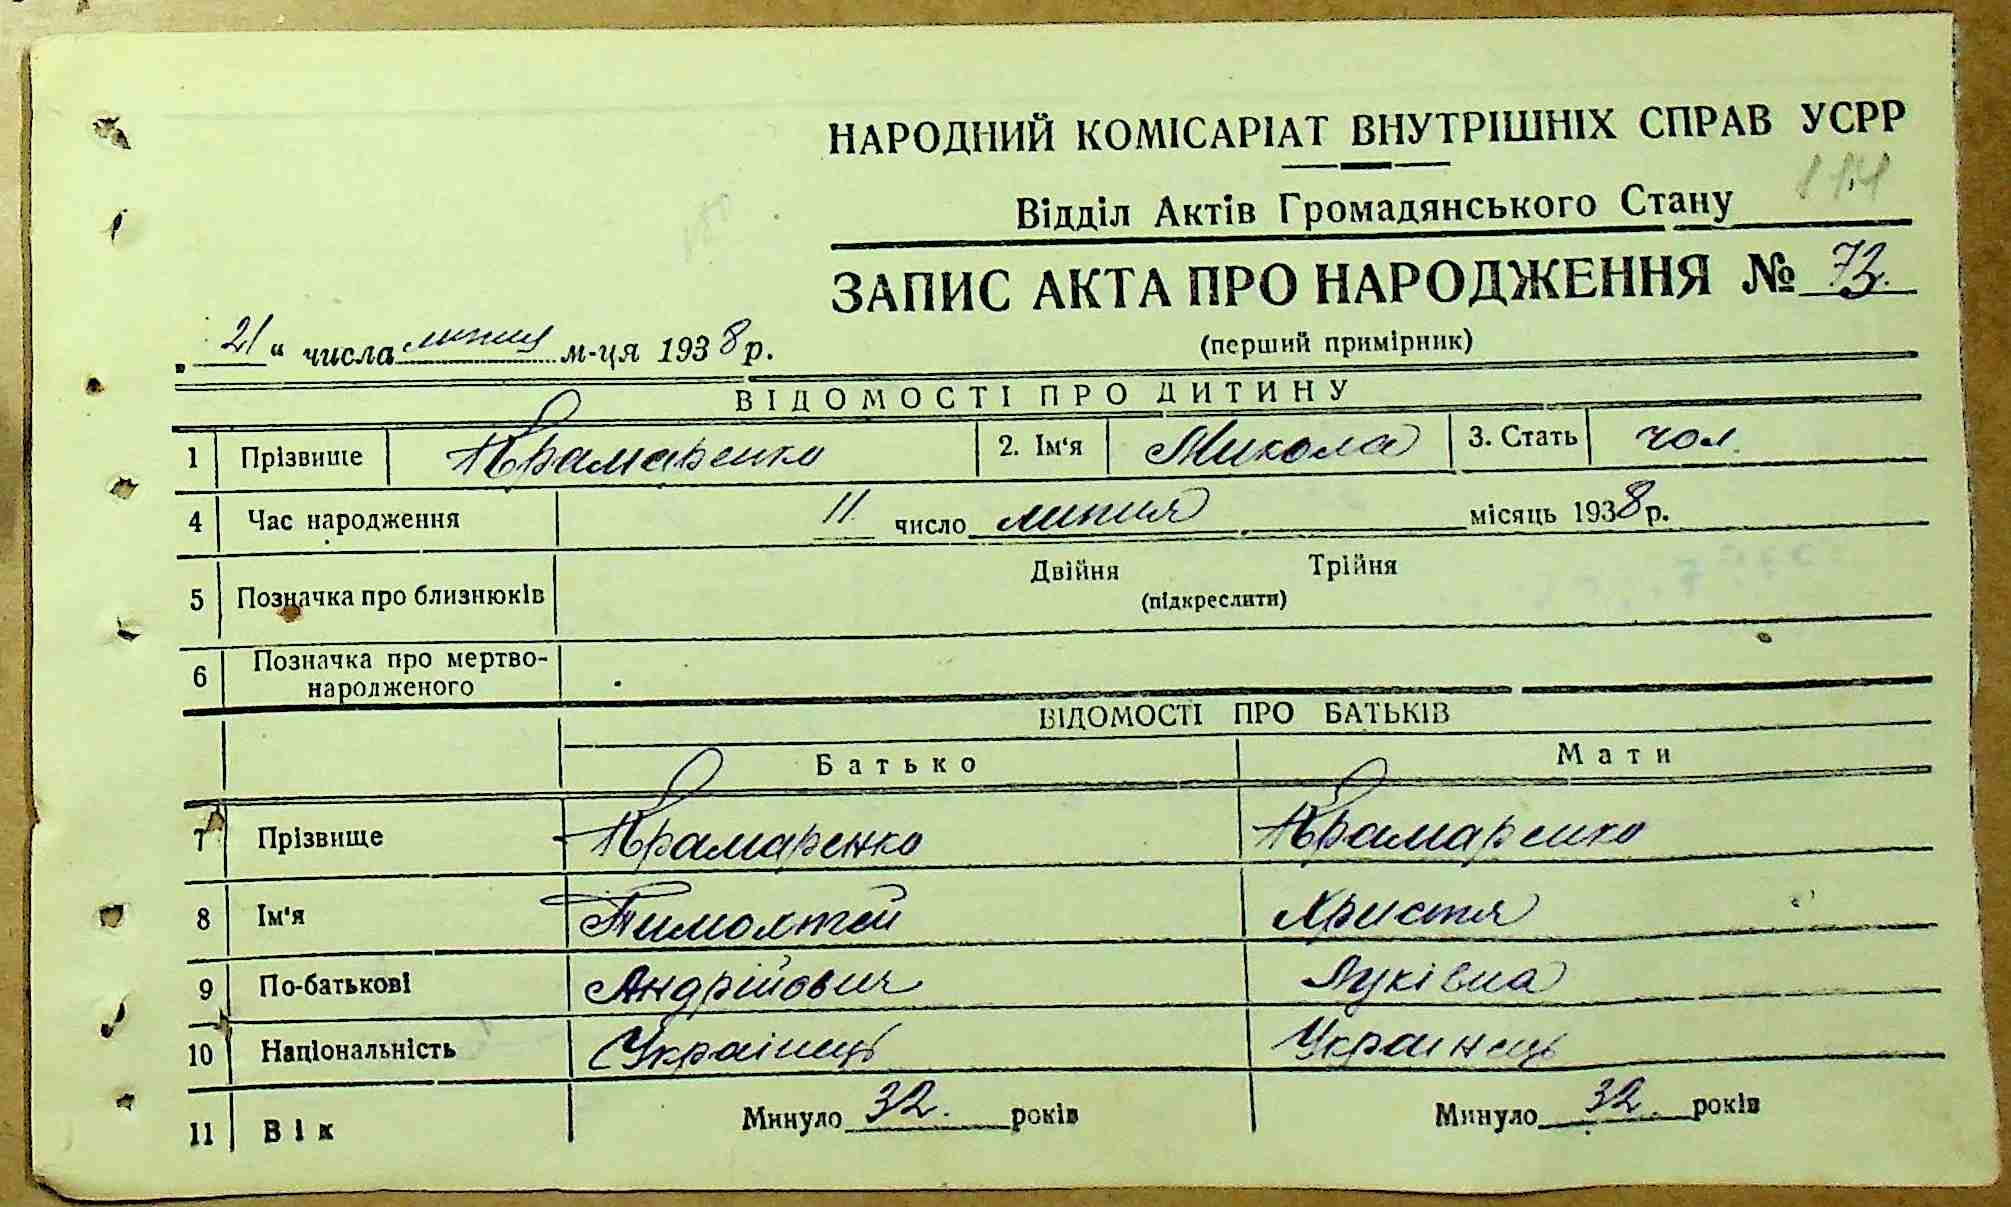 НАРОДНИЙ КОМІСАРІАТ ВНУТРІШНІХ СПРАВ УСРР
114
Відділ Актів Громадянського Стану
ЗАПИС АКТА ПРО НАРОДЖЕННЯ № 73.
„21“ числа липня м-ця 1938 р.
(перший примірник)
ВІДОМОСТІ ПРО ДИТИНУ
1 Прізвище Крамаренко 2. Ім'я Микола 3. Стать чол.
4 Час народження 11 число липня місяць 1938 р.
5 Позначка про близнюків Двійня Трійня
(підкреслити)
6 Позначка про мертво-
народженого
ВІДОМОСТІ ПРО БАТЬКІВ
Батько Мати
7 Прізвище Крамаренко Крамаренко
8 Ім'я Тимохтей Христя
9 По-батькові Андрійович Луківна
10 Національність Українець Украинець
11 Вік Минуло 32. років Минуло 32. років